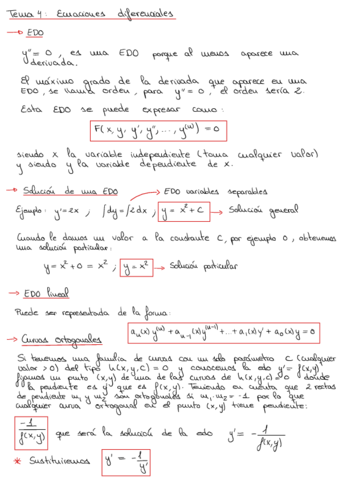 Tema 4: Ecuaciones diferenciales
→ EDO
y'' = 0 , es una EDO porque al menos aparece una
derivada.
El máximo grado de la derivada que aparece en una
EDO, se llama orden, para y'' = 0 , el orden sería 2.
Esta EDO se puede expresar como:
F(x, y, y', y'', ..., y⁽ⁿ⁾) = 0
siendo x la variable independiente (toma cualquier valor)
y siendo y la variable dependiente de x.
→ Solución de una EDO → EDO variables separables
Ejemplo: y' = 2x , ∫dy = ∫2dx , y = x² + C → Solución general
Cuando le damos un valor a la constante C, por ejemplo 0, obtenemos
una solución particular:
y = x² + 0 = x² , y = x² → Solución particular
→ EDO lineal
Puede ser representada de la forma:
aₙ(x)y⁽ⁿ⁾ + aₙ₋₁(x)y⁽ⁿ⁻¹⁾ + ... + a₁(x)y' + a₀(x)y = 0
→ Curvas ortogonales
Si tenemos una familia de curvas con un solo parámetro C (cualquier
valor > 0) del tipo h(x,y,C) = 0 y conocemos la edo y' = f(x,y)
fijamos un punto (x,y) de una de las curvas de h(x,y,c) = 0 donde
la pendiente es y' que es f(x,y). Teniendo en cuenta que 2 rectas
de pendiente m₁ y m₂ son ortogonales si m₁·m₂ = -1 por lo que
cualquier curva ortogonal en el punto (x,y) tiene pendiente:
-1/f(x,y) que será la solución de la edo y' = -1/f(x,y)
* Sustituimos y' = -1/y'